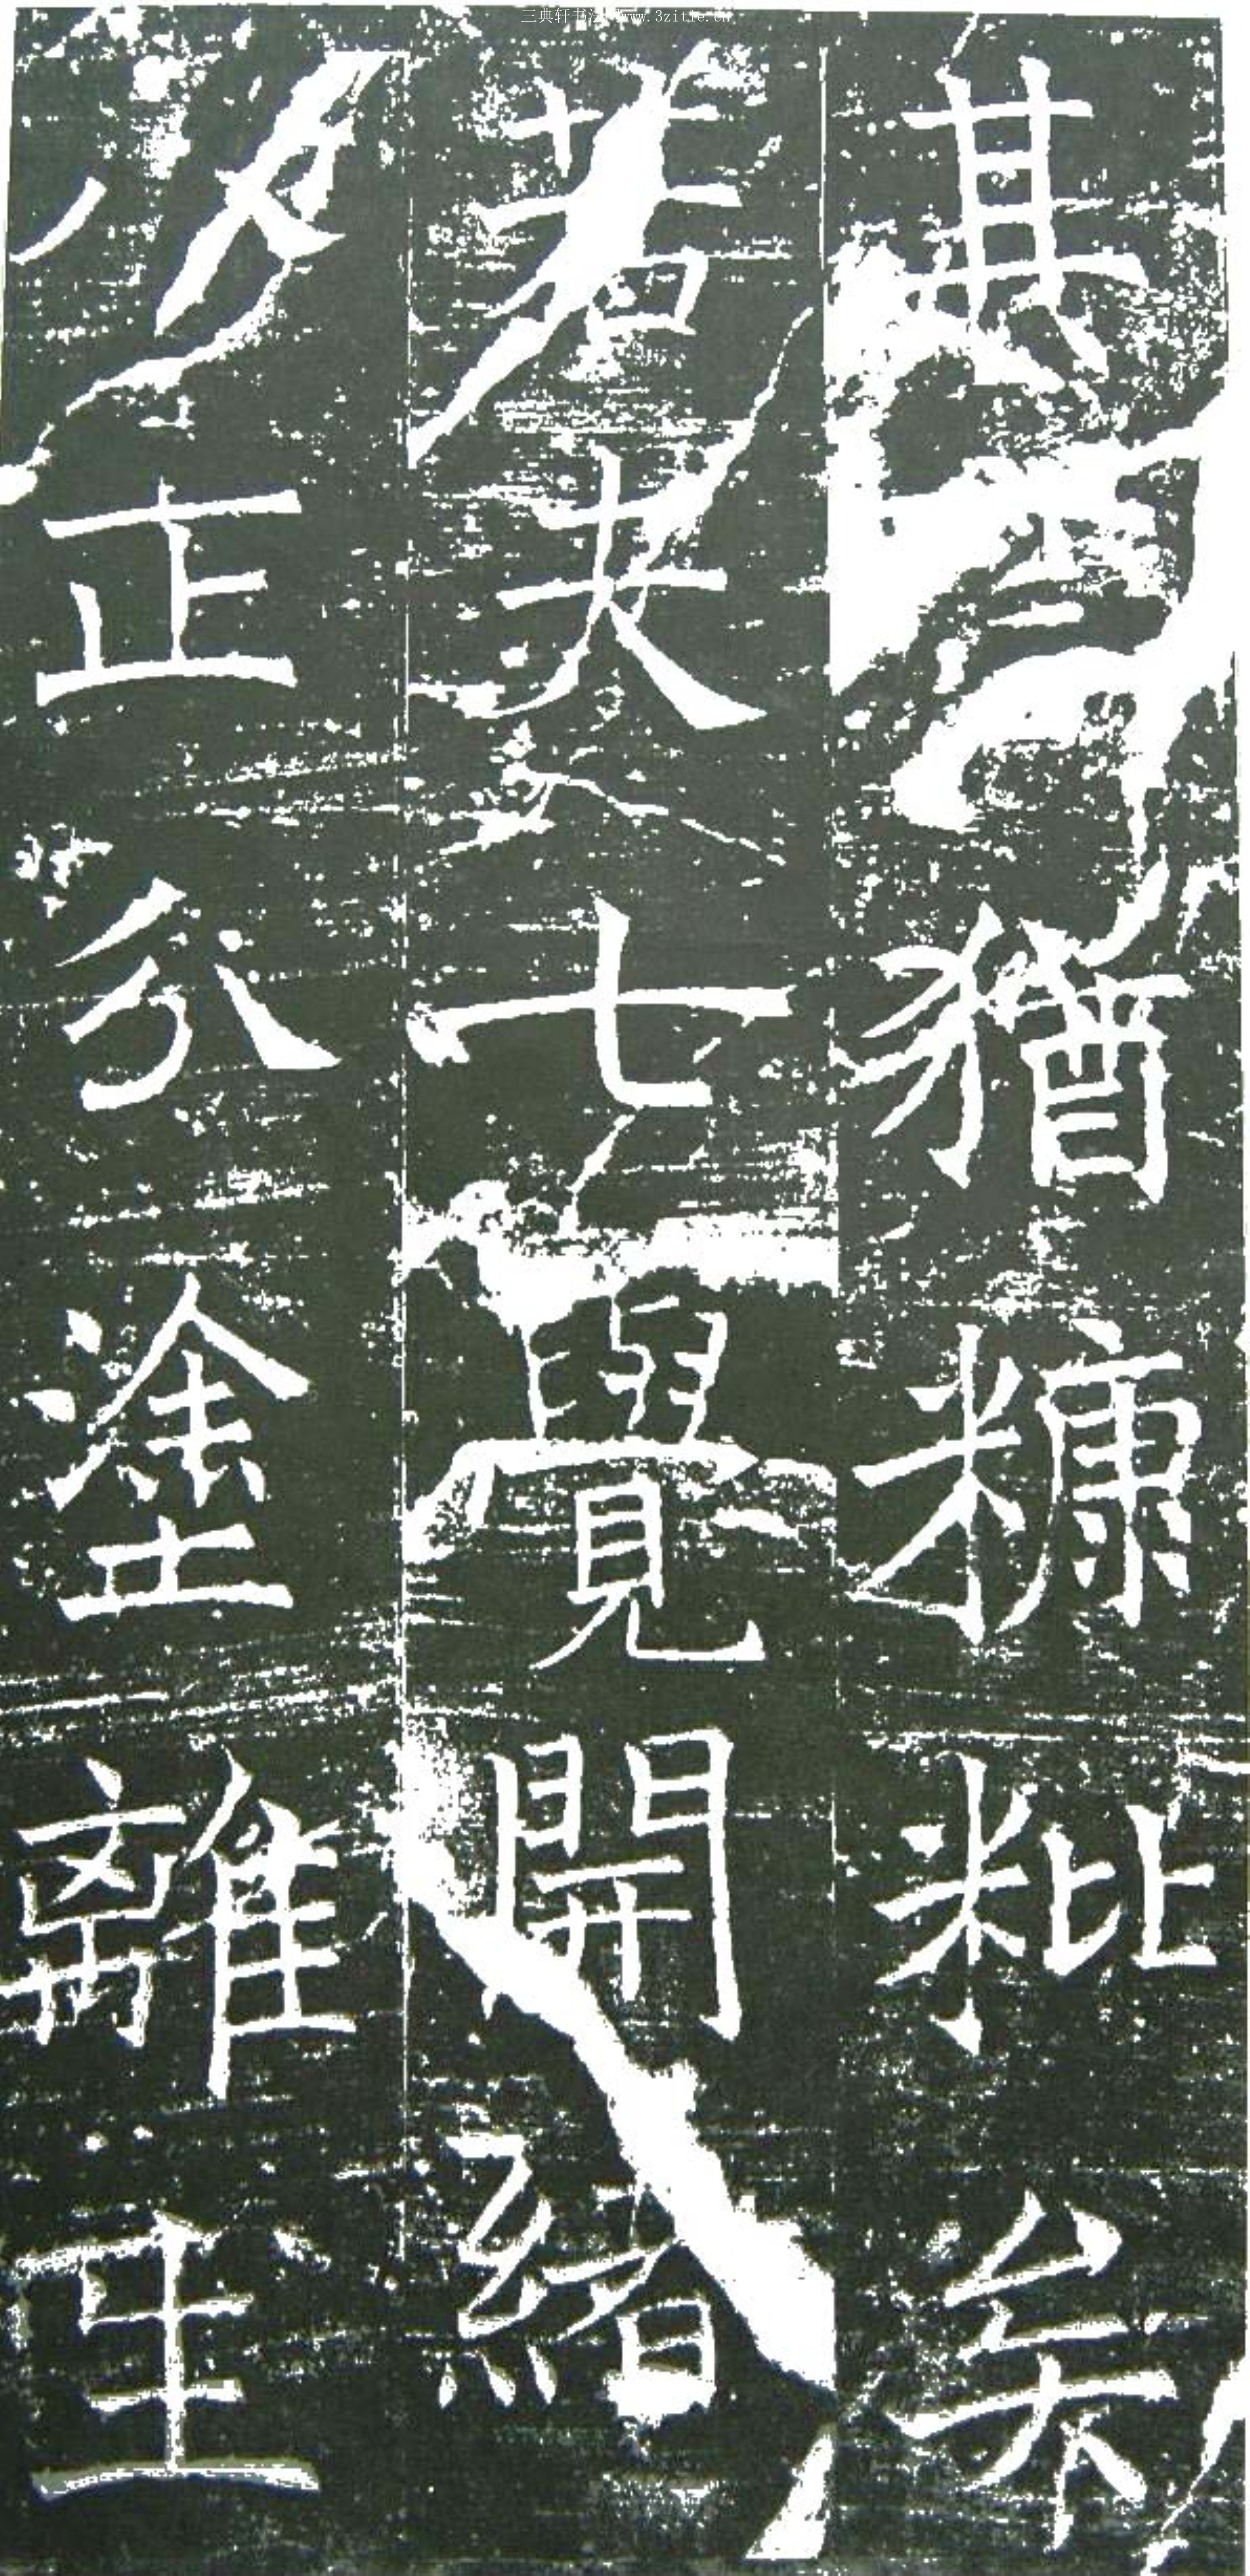 三典轩书法www.3zitie.cn
其猶糠粃矣
若夫七覺開緒
八正分塗離生